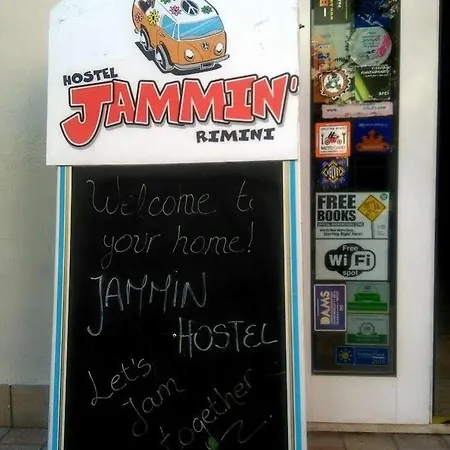 HOSTEL
JAMMIN'
RIMINI
Welcome to
your home!
JAMMIN
HOSTEL
Let's
Jam
together
FREE
BOOKS
Free
WiFi
spot
DAMS